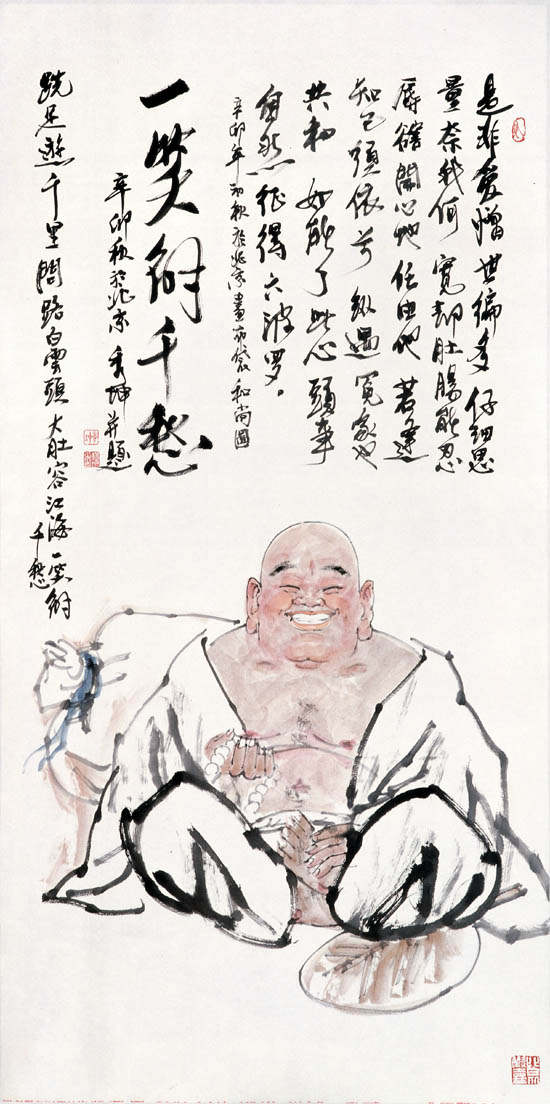 是非爱憎世偏多 仔细思
量奈我何 寬却肚腸能忍
辱 豁開心地任由他 若逢
知己須依分 縱遇冤家也
共和 如能了此心頭事
自然征得六波罗。
辛卯年初秋於北京畫布袋和尚圖
一笑解千愁
辛卯秋於北京 坤并題
跣足遊千里 問路白雲頭 大肚容江海 一笑解
千愁